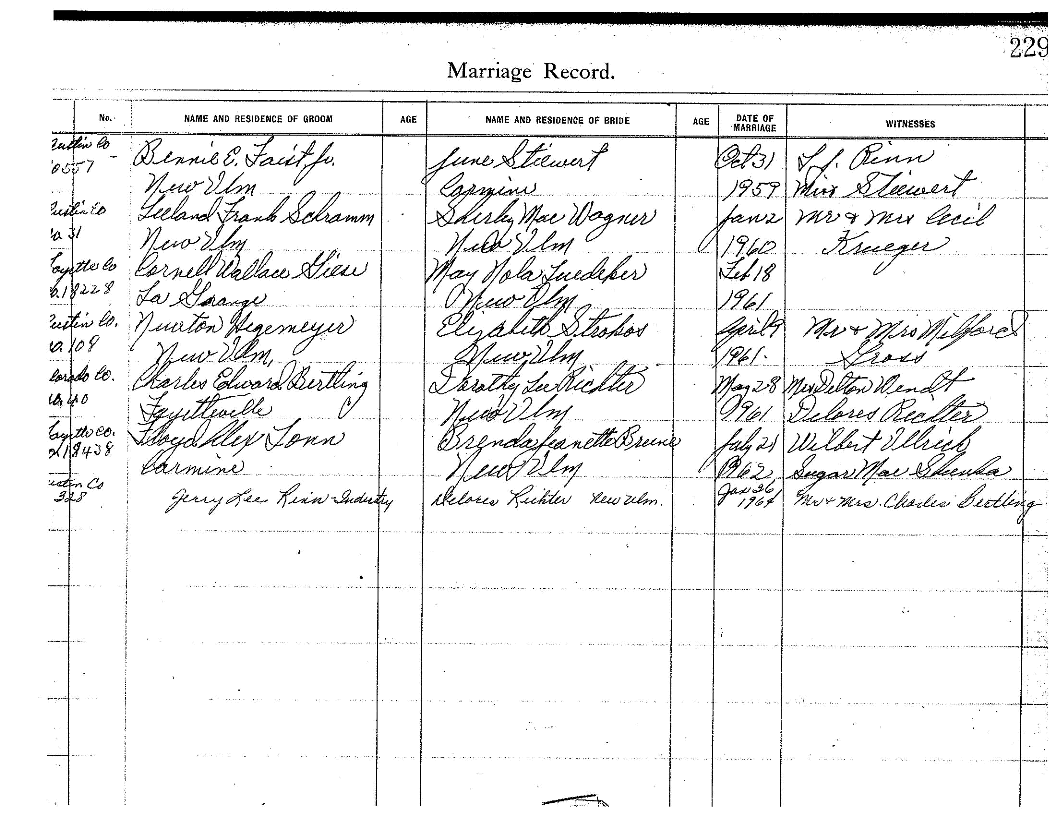 229
Marriage Record.
No. NAME AND RESIDENCE OF GROOM AGE NAME AND RESIDENCE OF BRIDE AGE DATE OF MARRIAGE WITNESSES
ustin Co Bennie E. Faist Jr. June Stiewert Oct 31 Rinn
0557 New Ulm Carmine 1959 Miss Stiewert
ustin Co Leeland Frank Schramm Shirley Mae Wagner Jan 2 Mr & Mrs Cecil
o. 31 New Ulm New Ulm 1960 Krueger
ayette Co Cornell Wallace Giese May Nola Luedeker Feb 18
o. 18228 La Grange New Ulm 1961
ustin Co. Newton Hegemeyer Elizabeth Strobos April 9 Mr & Mrs Milford
o. 109 New Ulm, New Ulm 1961. Gross
lorado Co. Charles Edward Bertling Dorothy Lee Richter May 28 Delton Wendt
40 Fayetteville New Ulm 1961 Delores Richter
ayette Co. Floyd Alex Tonn Brenda Jeanette Brune July 21 Wilbert Ullrich
18438 Carmine New Ulm 1962 Sugar Mae
ustin Co Jerry Lee Rinn - Industry Delores Richter New Ulm. Jan 26 Mr & Mrs. Charles Bertling
328 1964